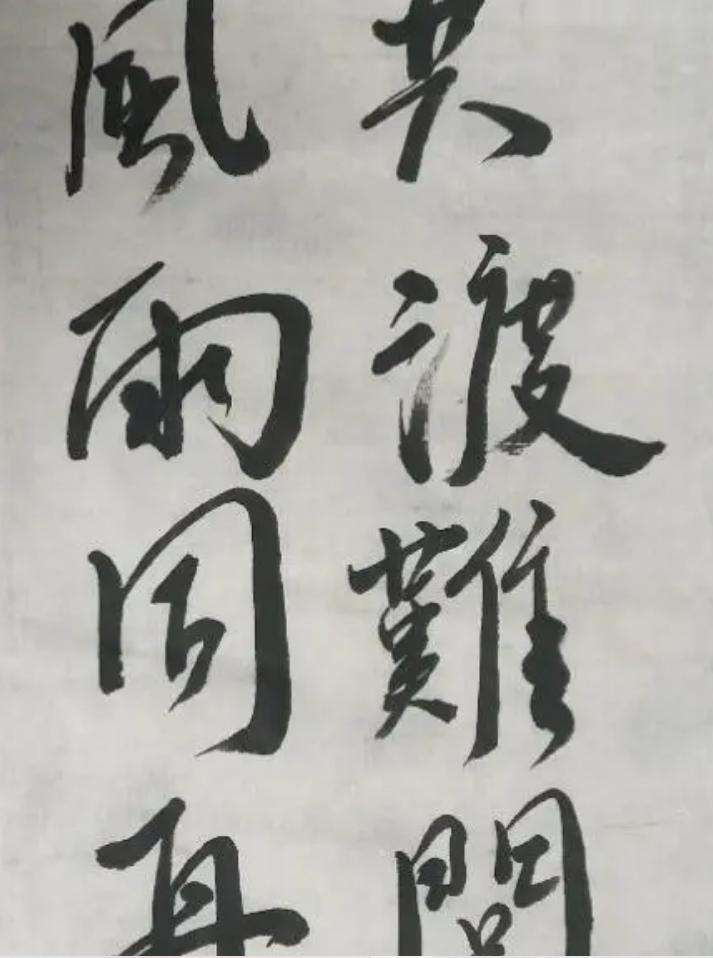 共渡難關
風雨同舟